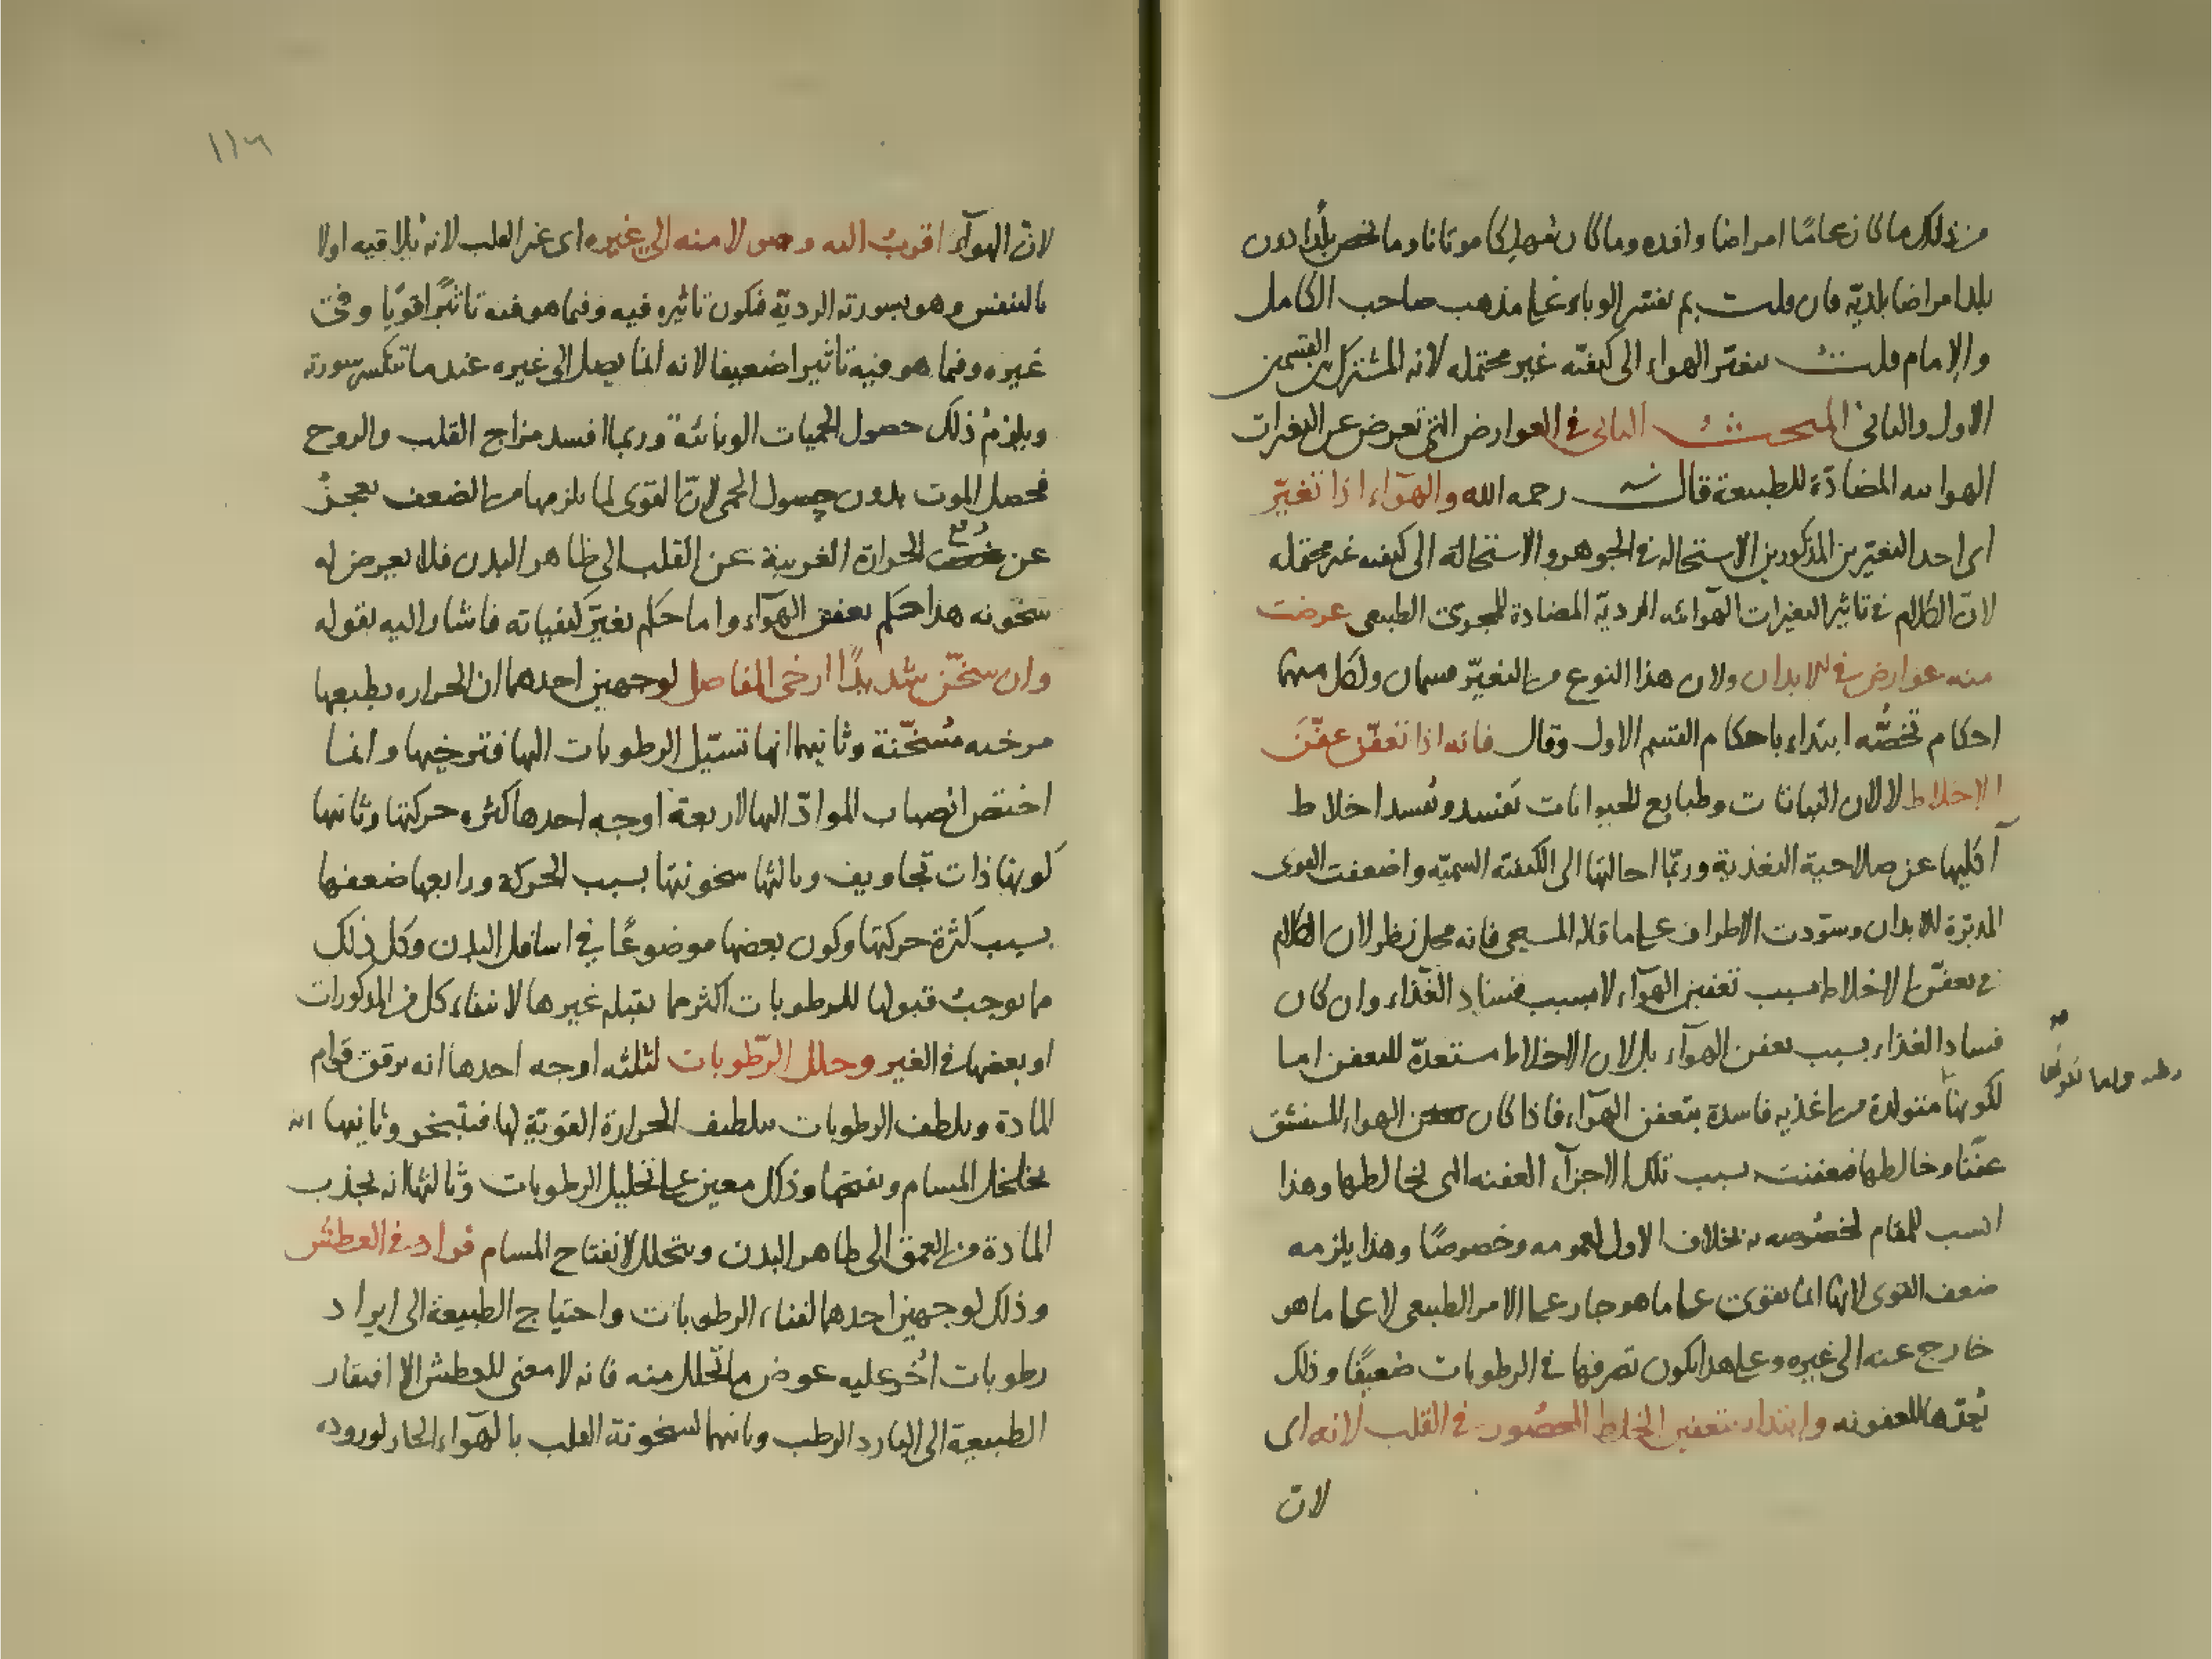 من ذلك ما كان عاما امراضا وافده وما كان مهلكا موتانا وما تخص بلدا دون
بلد امراضا بلديّة فان قلت بم نفسر الوباء على مذهب صاحب الكامل
والامام قلت بتغيّر الهواء الى كيفيّه غير محتمله لانه المشترك بين القسمين
الاول والثاني المبحث الثاني في العوارض التي تعرض عن التغيرات
الهوائيه المضادّة للطبيعة قال رحمه الله والهوآء اذا تغيّر
اى احد التغيّرين المذكورين الاستحاله في الجوهر والاستحالة الى كيفيه غير محتمله
لانّ الكلام في تاثير التغيرات الهوائيه الرديّة المضادة للمجرى الطبيعى عرضت
منه عوارض في الابدان ولان هذا النوع من التغيّر قسمان ولكل منهما
احكام تخصّه ابتداء باحكام القسم الاول وقال فانه اذا تعفّن عفّن
الاخلاط لا لان النباتات وطبايع الحيوانات تفسد وتفسد اخلاط
آكليها عن صلاحية التغذية وربّما احالتها الى الكيفيّه السميّه واضعفت القوى
المدبّرة للابدان وسوّدت الاطراف على ما قاله المسيحى فانه محل نظر لان الكلام
في تعفّن الاخلاط بسبب تعفين الهوآء لا بسبب فساد الغذاء وان كان
فساد الغذاء بسبب تعفن الهوآء بل لان الاخلاط مستعدّة للتعفن اما
لكونها متولدة من اغذيه فاسدة بتعفن الهوآء فاذا كان الهواء المستنشق
عفنا وخالطها فعفنت بسبب تلك الاجزآء العفنه التى تخالطها وهذا
انسب للمقام لخصوصه بخلاف الاول لعمومه وخصوصًا وهذا يلزمه
ضعف القوى لانها انما تقوى على ما هو جار على الامر الطبيعى لا على ما هو
خارج عنه الى غيره وعلى هذا يكون تصرفها في الرطوبات ضعيفًا وذلك
يُعدّها للعفونه وابتداء بتعفين الخلط المحصور في القلب لانه اى
لان
١١٦
لانّ الهوآء اقرب اليه وصولا منه الى غيره اى غير القلب لانه يلاقيه اولا
بالتنفس وهو بسورته الرديّة فيكون تاثيره فيه وفيما هو فيه تاثيرًا قويًا وفى
غيره وفيما هو فيه تاثيرا ضعيفا لانه انما يصل الى غيره عند ما تنكسر سورته
ويلزم ذلك حصول الحميات الوبائية وربما افسد مزاج القلب والروح
فحصل الموت بدون حصول الحمى لانّ القوى لما يلزمها من الضعف تعجز
عن دفع الحرارة الغريبة عن القلب الى ظاهر البدن فلا يعرض له
سخونه هذا حكم تعفن الهوآء واما حكم تغيّر كيفياته فاشار اليه بقوله
وان سخّن شديدًا ارخى المفاصل لوجهين احدهما ان الحراره بطبعها
مرخيه مُسخّنة وثانيهما انها تسيّل الرطوبات اليها فترخيها وانما
اختص انصباب الموادّ اليها لاربعة اوجه احدها كثره حركتها وثانيها
كونها ذات تجاويف وثالثها سخونتها بسبب الحركة ورابعها ضعفها
بسبب كثرة حركتها وكون بعضها موضوعًا في اسافل البدن وكل ذلك
مما يوجب قبولها للرطوبات اكثر مما يقبله غيرها لانتفاء كل من المذكورات
او بعضها في الغير وحلل الرّطوبات لثلثه اوجه احدها انه يرقق قوام
المادة ويلطف الرطوبات بتلطيف الحرارة القويّة لها فتتبخر وثانيها انه
يخلخل المسام ويفتحها وذلك معين على تحليل الرطوبات وثالثها انه يجذب
المادة من العمق الى ظاهر البدن ويتحلل لانفتاح المسام فزاد في العطش
وذلك لوجهين احدهما لفناء الرطوبات واحتياج الطبيعة الى ايراد
رطوبات اُخر عليه عوض ما تحلل منه فانه لا معنى للعطش الا افتقار
الطبيعة الى البارد الرطب وثانيهما لسخونة القلب بالهوآء الحار لوروده